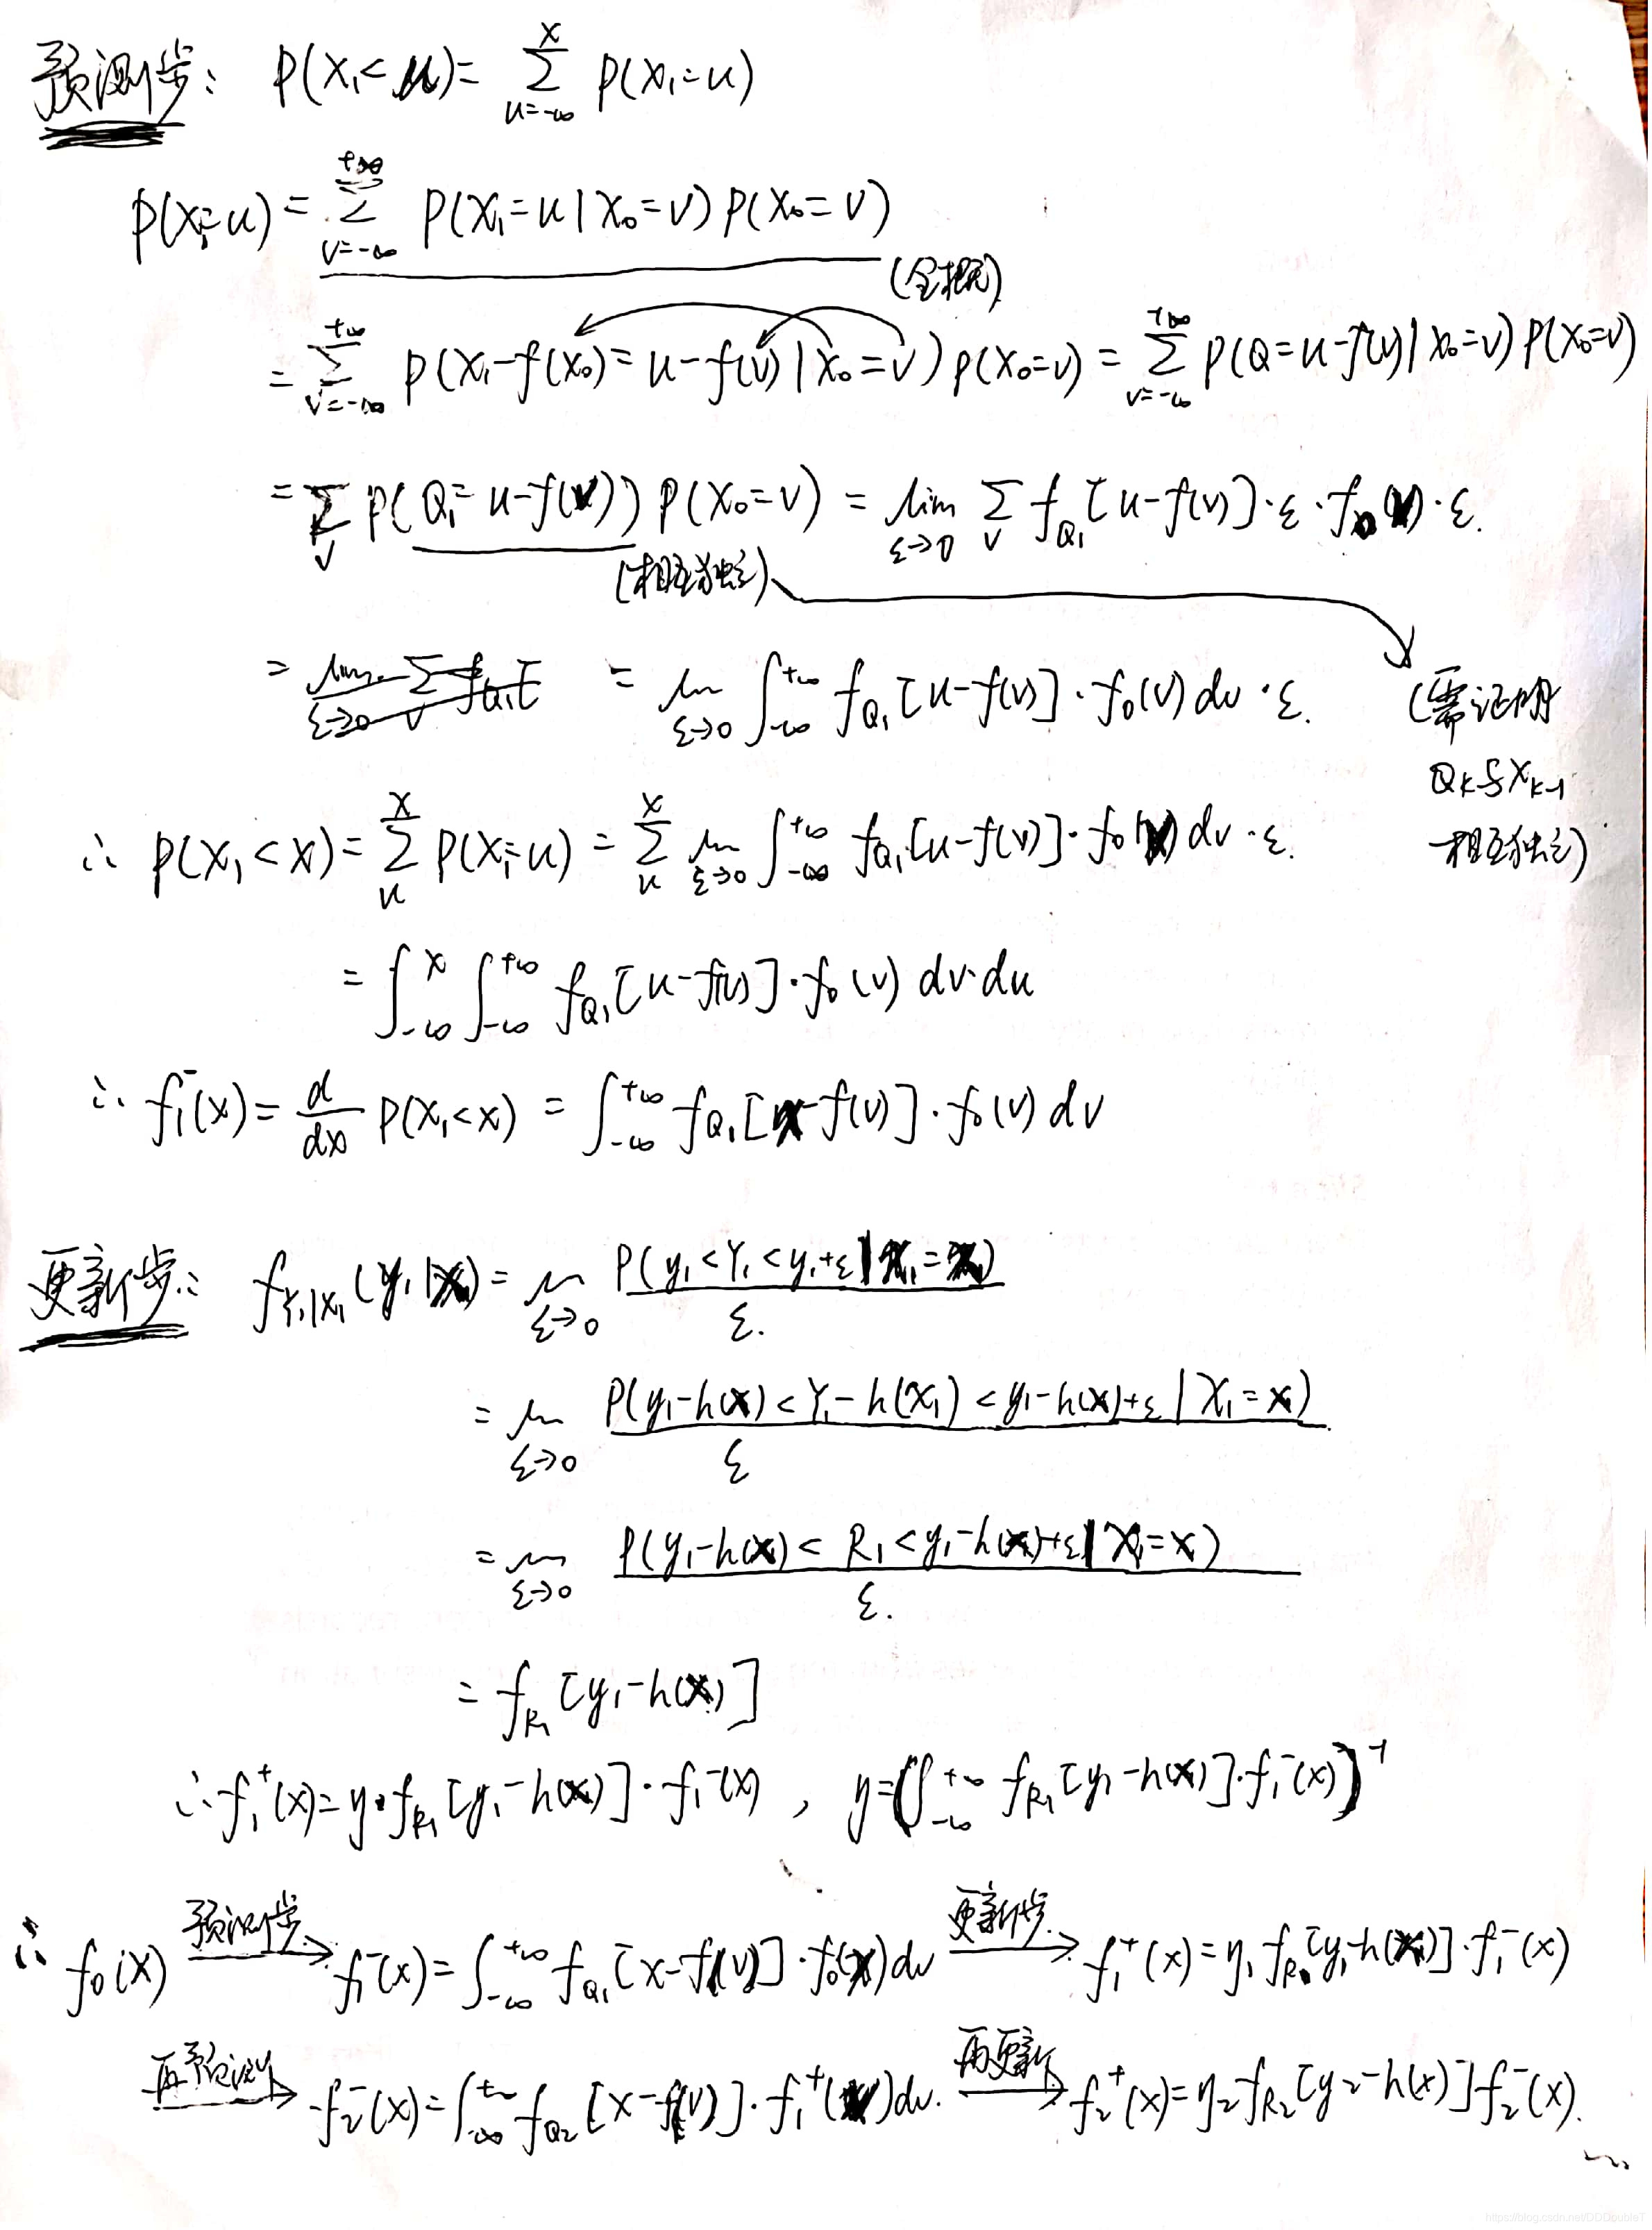 预测步: P(X₁<u)= ∑_{u=-∞}^{x} P(X₁=u)
P(X₁=u) = ∑_{v=-∞}^{+∞} P(X₁=u|X₀=v) P(X₀=v)
(全概)
= ∑_{v=-∞}^{+∞} P(X₁-f(X₀)=u-f(v)|X₀=v) P(X₀=v) = ∑_{v=-∞}^{+∞} P(Q=u-f(v)|X₀=v) P(X₀=v)
= ∑_v P(Q₁=u-f(v)) P(X₀=v) = lim_{ε→0} ∑_v f_{Q₁}[u-f(v)]·ε·f₀(v)·ε.
(相互独立)
= lim_{ε→0} ∫_{-∞}^{+∞} f_{Q₁}[u-f(v)]·f₀(v)dv·ε.
(需证明
Q_k与X_{k-1}
相互独立)
∴ P(X₁<x)= ∑_u^x P(X₁=u) = ∑_u^x lim_{ε→0} ∫_{-∞}^{+∞} f_{Q₁}[u-f(v)]·f₀(v)dv·ε.
= ∫_{-∞}^{x} ∫_{-∞}^{+∞} f_{Q₁}[u-f(v)]·f₀(v) dv·du
∴ f₁⁻(x)= d/dx P(X₁<x) = ∫_{-∞}^{+∞} f_{Q₁}[x-f(v)]·f₀(v)dv
更新步: f_{Y₁|X₁}(y₁|x)= lim_{ε→0} P(y₁<Y₁<y₁+ε|X₁=x)/ε.
= lim_{ε→0} P(y₁-h(x)<Y₁-h(X₁)<y₁-h(x)+ε|X₁=x)/ε
= lim_{ε→0} P(y₁-h(x)<R₁<y₁-h(x)+ε|X₁=x)/ε.
= f_{R₁}[y₁-h(x)]
∴ f₁⁺(x)=η·f_{R₁}[y₁-h(x)]·f₁⁻(x) , η=(∫_{-∞}^{+∞} f_{R₁}[y₁-h(x)]·f₁⁻(x))⁻¹
∴ f₀(x) 预测步→ f₁⁻(x)=∫_{-∞}^{+∞} f_{Q₁}[x-f(v)]·f₀(v)dv 更新步→ f₁⁺(x)=η₁ f_{R₁}[y₁-h(x)]·f₁⁻(x)
再预测→ f₂⁻(x)=∫_{-∞}^{+∞} f_{Q₂}[x-f(v)]·f₁⁺(v)dv. 再更新→ f₂⁺(x)=η₂ f_{R₂}[y₂-h(x)]f₂⁻(x).
...
https://blog.csdn.net/DDDoubleT